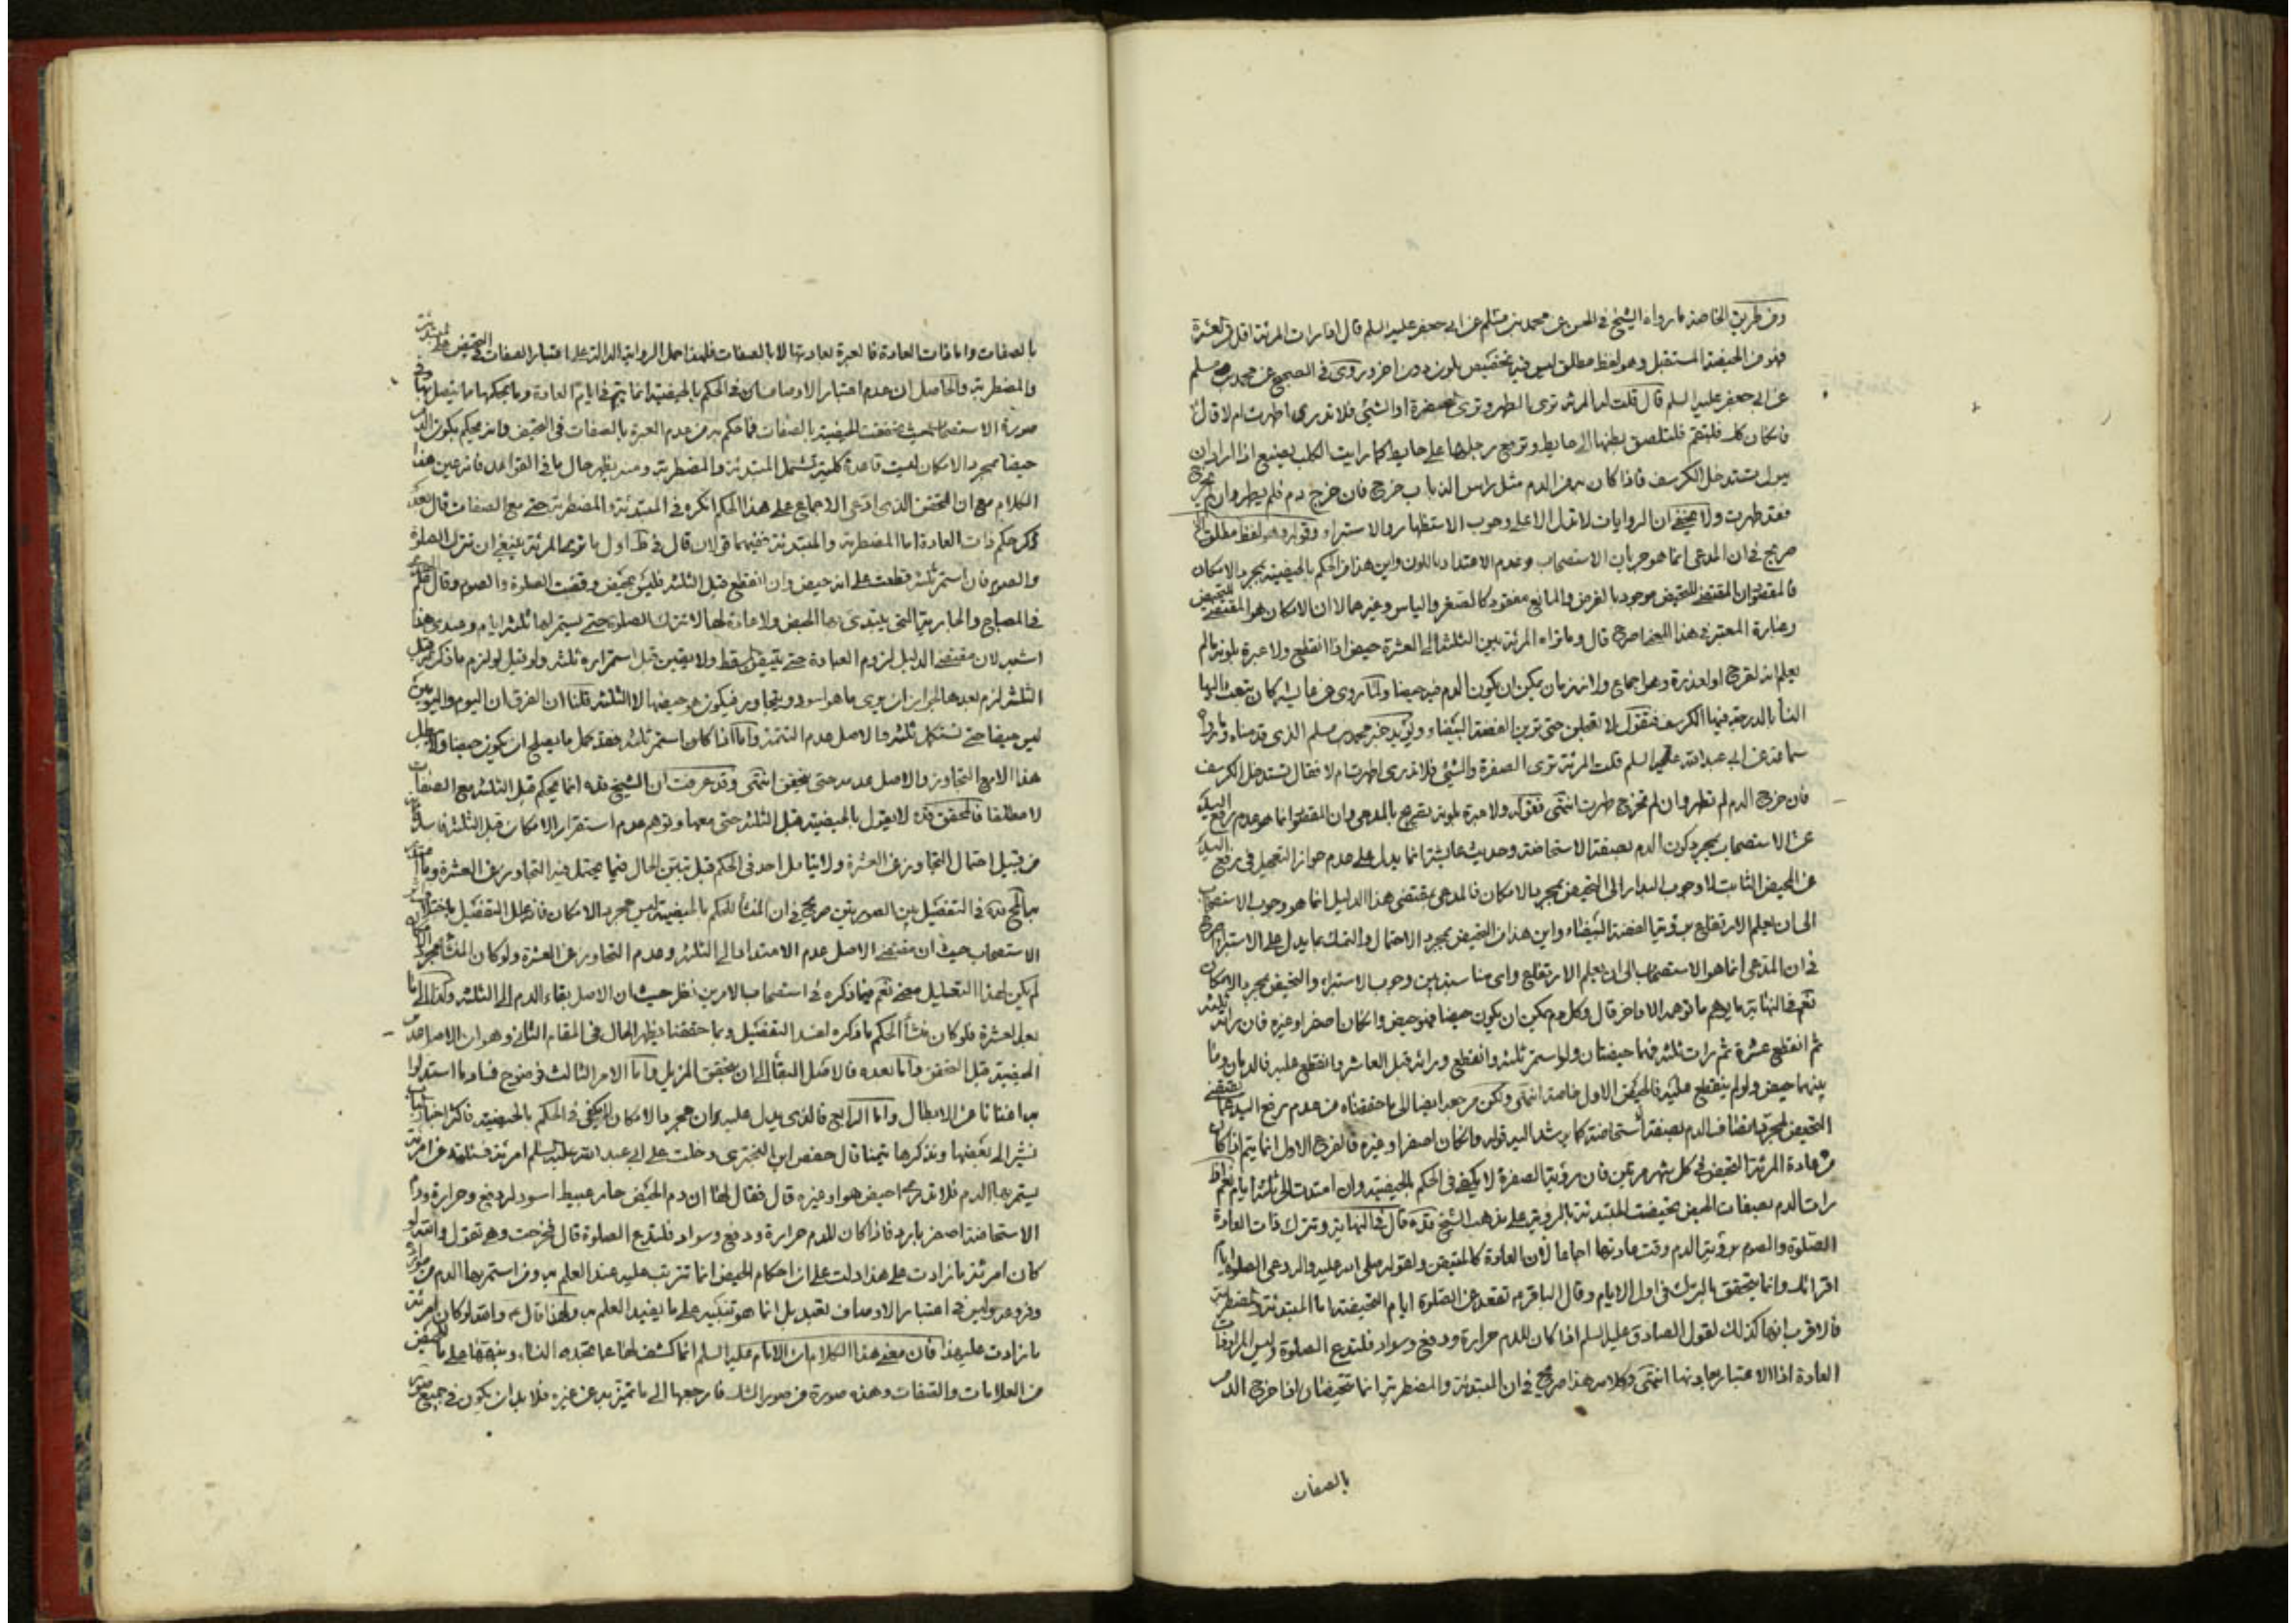 ومن طريق الخاصة ما رواه الشيخ في الحسن عن محمد بن مسلم عن ابي جعفر عليه السلم قال اذا رات المرئة اقل من العشرة
فهو من الحيضة المستقبل وهو لفظ مطلق ليس فيه تخصيص بلون دون اخر وروى في الصحيح عن محمد بن مسلم
عن ابي جعفر عليه السلم قال قلت له المرئة ترى الطهر وترى الصفرة او الشئ فلا تدرى اطهرت ام لا قال
فاذا كان كك فلتقم فلتلصق بطنها الى حايط وترفع رجلها على حايط كما رايت الكلب يصنع اذا اراد ان
يبول ثم تستدخل الكرسف فاذا كان من الدم مثل راس الذباب خرج فان خرج دم فلم يطهر وان لم يخرج
فقد طهرت ولا يخفى ان الروايات لا تدل الا على وجوب الاستظهار والاستبراء وقوله وهو لفظ مطلق
صريح في ان المدعى انما هو جريان الاستصحاب وعدم الاعتداد باللون واين هذا من الحكم بالحيضية بمجرد الامكان
فالمقتضى للتحيض موجود بالفرض والمانع مفقود كالصغر والياس وغيرهما لا ان الامكان هو المقتضى للتحيض
وعبارة المعتبر في هذا المعنى اصرح قال وما تراه المرئة بين الثلثة الى العشرة حيض اذا انقطع ولا عبرة بلونه ما لم
يعلم انه لقرح او لعذرة وهو اجماع ولانه زمان يمكن ان يكون الدم فيه حيضا ولما روى عن عايشة كان تبعث اليها
النسأ بالدرجة فيها الكرسف فتقول لا تعجلن حتى ترين القصة البيضاء ويؤيد خبر محمد بن مسلم الذى قدمناه وما رواه
سماعة عن ابي عبد الله عليه السلم قلت المرئة ترى الصفرة والشئ فلا تدرى اطهرت ام لا فقال تستدخل الكرسف
فان خرج الدم لم تطهر وان لم تخرج طهرت انتهى فقوله ولا عبرة بلونه تصريح بالمدعى وان المقصود انما هو عدم رفع اليد
عن الاستصحاب بمجرد كون الدم بصفة الاستحاضة وحديث عايشة انما يدل على عدم جواز التعجيل في رفع اليد
عن الحيض الثابت لا وجوب البدار الى التحيض بمجرد الامكان فالمدعى بمقتضى هذا الدليل انما هو وجوب الاستصحاب
الى ان يعلم الارتفاع برؤية القصة البيضاء واين هذا من التحيض بمجرد الاحتمال والتمسك بما يدل على الاستبراء صريح
في ان المدعى انما هو الاستصحاب الى ان يعلم الارتفاع واى مناسبة بين وجوب الاستبراء والتحيض بمجرد الامكان
نعم في النهاية ما يوهم ما توهمه الاواخر قال وكل دم يمكن ان يكون حيضا فهو حيض وان كان اصفر او غيره فان رات ثلثة
ثم انقطع عشرة ثم رات ثلثة فهما حيضتان ولو استمر ثلثة وانقطع وراته قبل العاشر وانقطع عليه فالدمان وما
بينهما حيض ولو لم ينقطع عليه فالحيض الاول خاصة انتهى ولكن مرجعه ايضا الى ما حققناه من عدم رفع اليد عما يقتضى
التحيض بمجرد اتصاف الدم بصفة الاستحاضة كما يرشد اليه قوله وان كان اصفر او غيره فالفرع الاول انما يتم اذا كان
من عادة المرئة التحيض في كل شهر مرتين فان رؤية الصفرة لا يكفى في الحكم بالحيضية وان امتدت الى ثلثة ايام نعم اذا
رات الدم بصفات الحيض تحيضت المبتدئة بالرؤية على مذهب الشيخ قده قال في النهاية وتترك ذات العادة
الصلوة والصوم برؤية الدم وقت عادتها اجماعا لان العادة كالمتيقن ولقوله صلى الله عليه واله دعى الصلوة ايام
اقرائك وانما يتحقق بالترك في اول الايام وقال الباقر ع تقعد عن الصلوة ايام الحيض اما المبتدئة والمضطربة
فالاقرب انها كذلك لقول الصادق عليه السلم اذا كان للدم حرارة ودفع وسواد فلتدع الصلوة وليس المراد ذات
العادة اذ الاعتبار بعادتها انتهى وكلامه هذا صريح في ان المبتدئة والمضطربة انما تتحيضان اذا خرج الدم
بالصفات
بالصفات واما ذات العادة فالعبرة بعادتها لا بالصفات فلهذا حمل الرواية الدالة على اعتبار الصفات في التحيض على المبتدئة
والمضطربة والحاصل ان عدم اعتبار الاوصاف في الحكم بالحيضية انما يتم في ايام العادة وما بحكمها مما يتصل بها وفى
صورة الاستصحاب حيث تحققت الحيضية بالصفات فما حكم به من عدم العبرة بالصفات في التحيض وانه يحكم بكون الدم
حيضا بمجرد الامكان ليست قاعدة كلية تشمل المبتدئة والمضطربة ومنه يظهر حال ما في القواعد فانه عين هذا
الكلام مع ان المحقق الذى ادعى الاجماع على هذا الحكم انكره في المبتدئة والمضطربة حتى مع الصفات قال بعد
ذكر حكم ذات العادة اما المضطربة والمبتدئة ففيهما قولان قال في ط اول ما ترى المرئة ينبغى ان تترك الصلوة
والصوم فان استمر ثلثة قطعت على انه حيض وان انقطع قبل الثلثة فليس بحيض وقضت الصلوة والصوم وقال علم الهدى
في المصباح والجارية التى يبتدئ بها الحيض ولا عادة لها لا تترك الصلوة حتى يستمر لها ثلثة ايام وعندى هذا
اشبه لان مقتضى الدليل لزوم العبادة حتى يتيقن المسقط ولا يقين قبل استمراره ثلثة ولو قيل لو لزم ما ذكرته قبل
الثلثة لزم بعدها لجواز ان يرى ما هو اسود ويتجاوز فيكون هو حيضها لا الثلثة قلنا ان الفرق ان اليوم واليومين
ليس حيضا حتى تستكمل ثلثة والاصل عدم التتمة واما اذا كان استمر ثلثة فقد كمل ما يصلح ان يكون حيضا ولا يبطل
هذا الا مع التجاوز والاصل عدمه حتى يتحقق انتهى وقد عرفت ان الشيخ قده انما يحكم قبل الثلثة مع الصفات
لا مطلقا فالمحقق قده لا يقول بالحيضية قبل الثلثة حتى معها وتوهم عدم استقرار الامكان قبل الثلثة فاسد
من قبيل احتمال التجاوز عن العشرة ولا يتامل احد في الحكم قبل تبين الحال فيما يحتمل فيه التجاوز عن العشرة وما
صالح به في التفصيل بين الصورتين صريح في ان المنشأ للحكم بالحيضية ليس مجرد الامكان فانه علل التفصيل باختلاف
الاستصحاب حيث ان مقتضى الاصل عدم الامتداد الى الثلثة وعدم التجاوز عن العشرة ولو كان المنشأ مجرد الامكان
لم يكن لهذا التعليل معنى نعم فيما ذكره في استصحاب الامرين نظر حيث ان الاصل بقاء الدم الى الثلثة وكذا الى ما
بعد العشرة فلو كان منشأ الحكم ما ذكره لفسد التفصيل وبما حققنا يظهر الحال في المقام الثانى وهو ان الاصل عدم
الحيضية قبل التحقق واما بعده فالاصل البقأ الى ان يتحقق المزيل واما الامر الثالث فوضوح فساد ما استدلوا
به اغنانا عن الابطال واما الرابع فالذى يدل عليه وان مجرد الامكان لا يكفى في الحكم بالحيضية فاكثر اخبار الباب
نشير الى بعضها ونذكرها تيمنا قال حفص ابن البخترى دخلت على ابي عبد الله عليه السلم امرئة فسئلته عن امرئة
يستمر بها الدم فلا تدرى احيض هو او غيره قال فقال لها ان دم الحيض حار عبيط اسود له دفع وحرارة ودم
الاستحاضة اصفر بارد فاذا كان للدم حرارة ودفع وسواد فلتدع الصلوة قال فخرجت وهى تقول والله لو
كان امرئة ما زادت على هذا دلت على ان احكام الحيض انما تترتب عليه عند العلم به ومن استمر بها الدم من موارده
وفروعه وليس في اعتبار الاوصاف تعبد بل انما هو تنبيه على ما يفيد العلم به ولهذا قال ع والله لو كان امرئة
ما زادت على هذا فان معنى هذا الكلام ان الامام عليه السلم انما كشف لها عما تعتمده النساء ونبهها على ما للحيض
من العلامات والصفات وهذه صورة من صور الشك فارجعها الى ما تميز به عن غيره فلا بد ان يكون في جميع صور